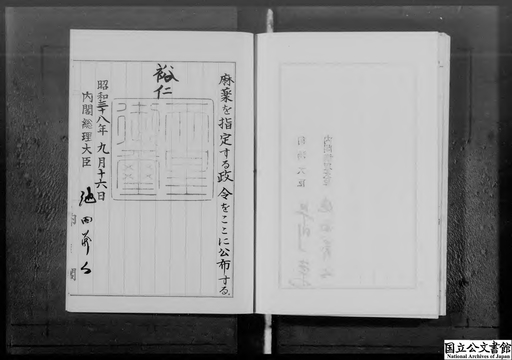 麻薬を指定する政令をここに公布する。
裕仁
天皇御璽
昭和三十八年九月十六日
内閣総理大臣
池田勇人
国立公文書館
National Archives of Japan